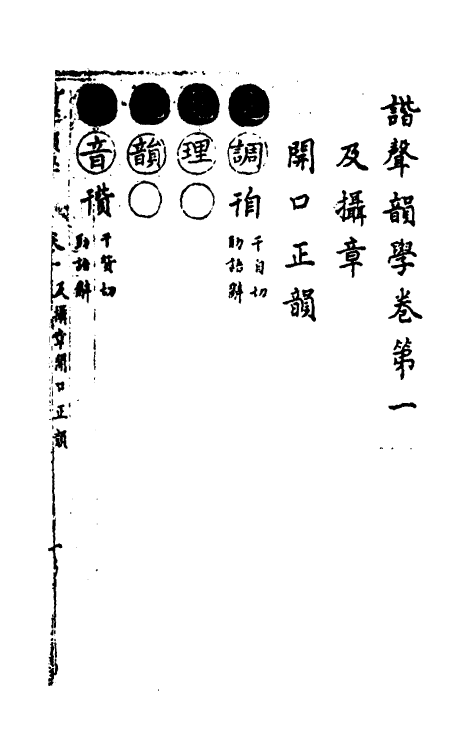 諧聲韻學卷第一
及攝章
開口正韻
調
千自切
助語辭
理
○
韻
○
音
助語辭
卷一 及攝章開口正韻 一